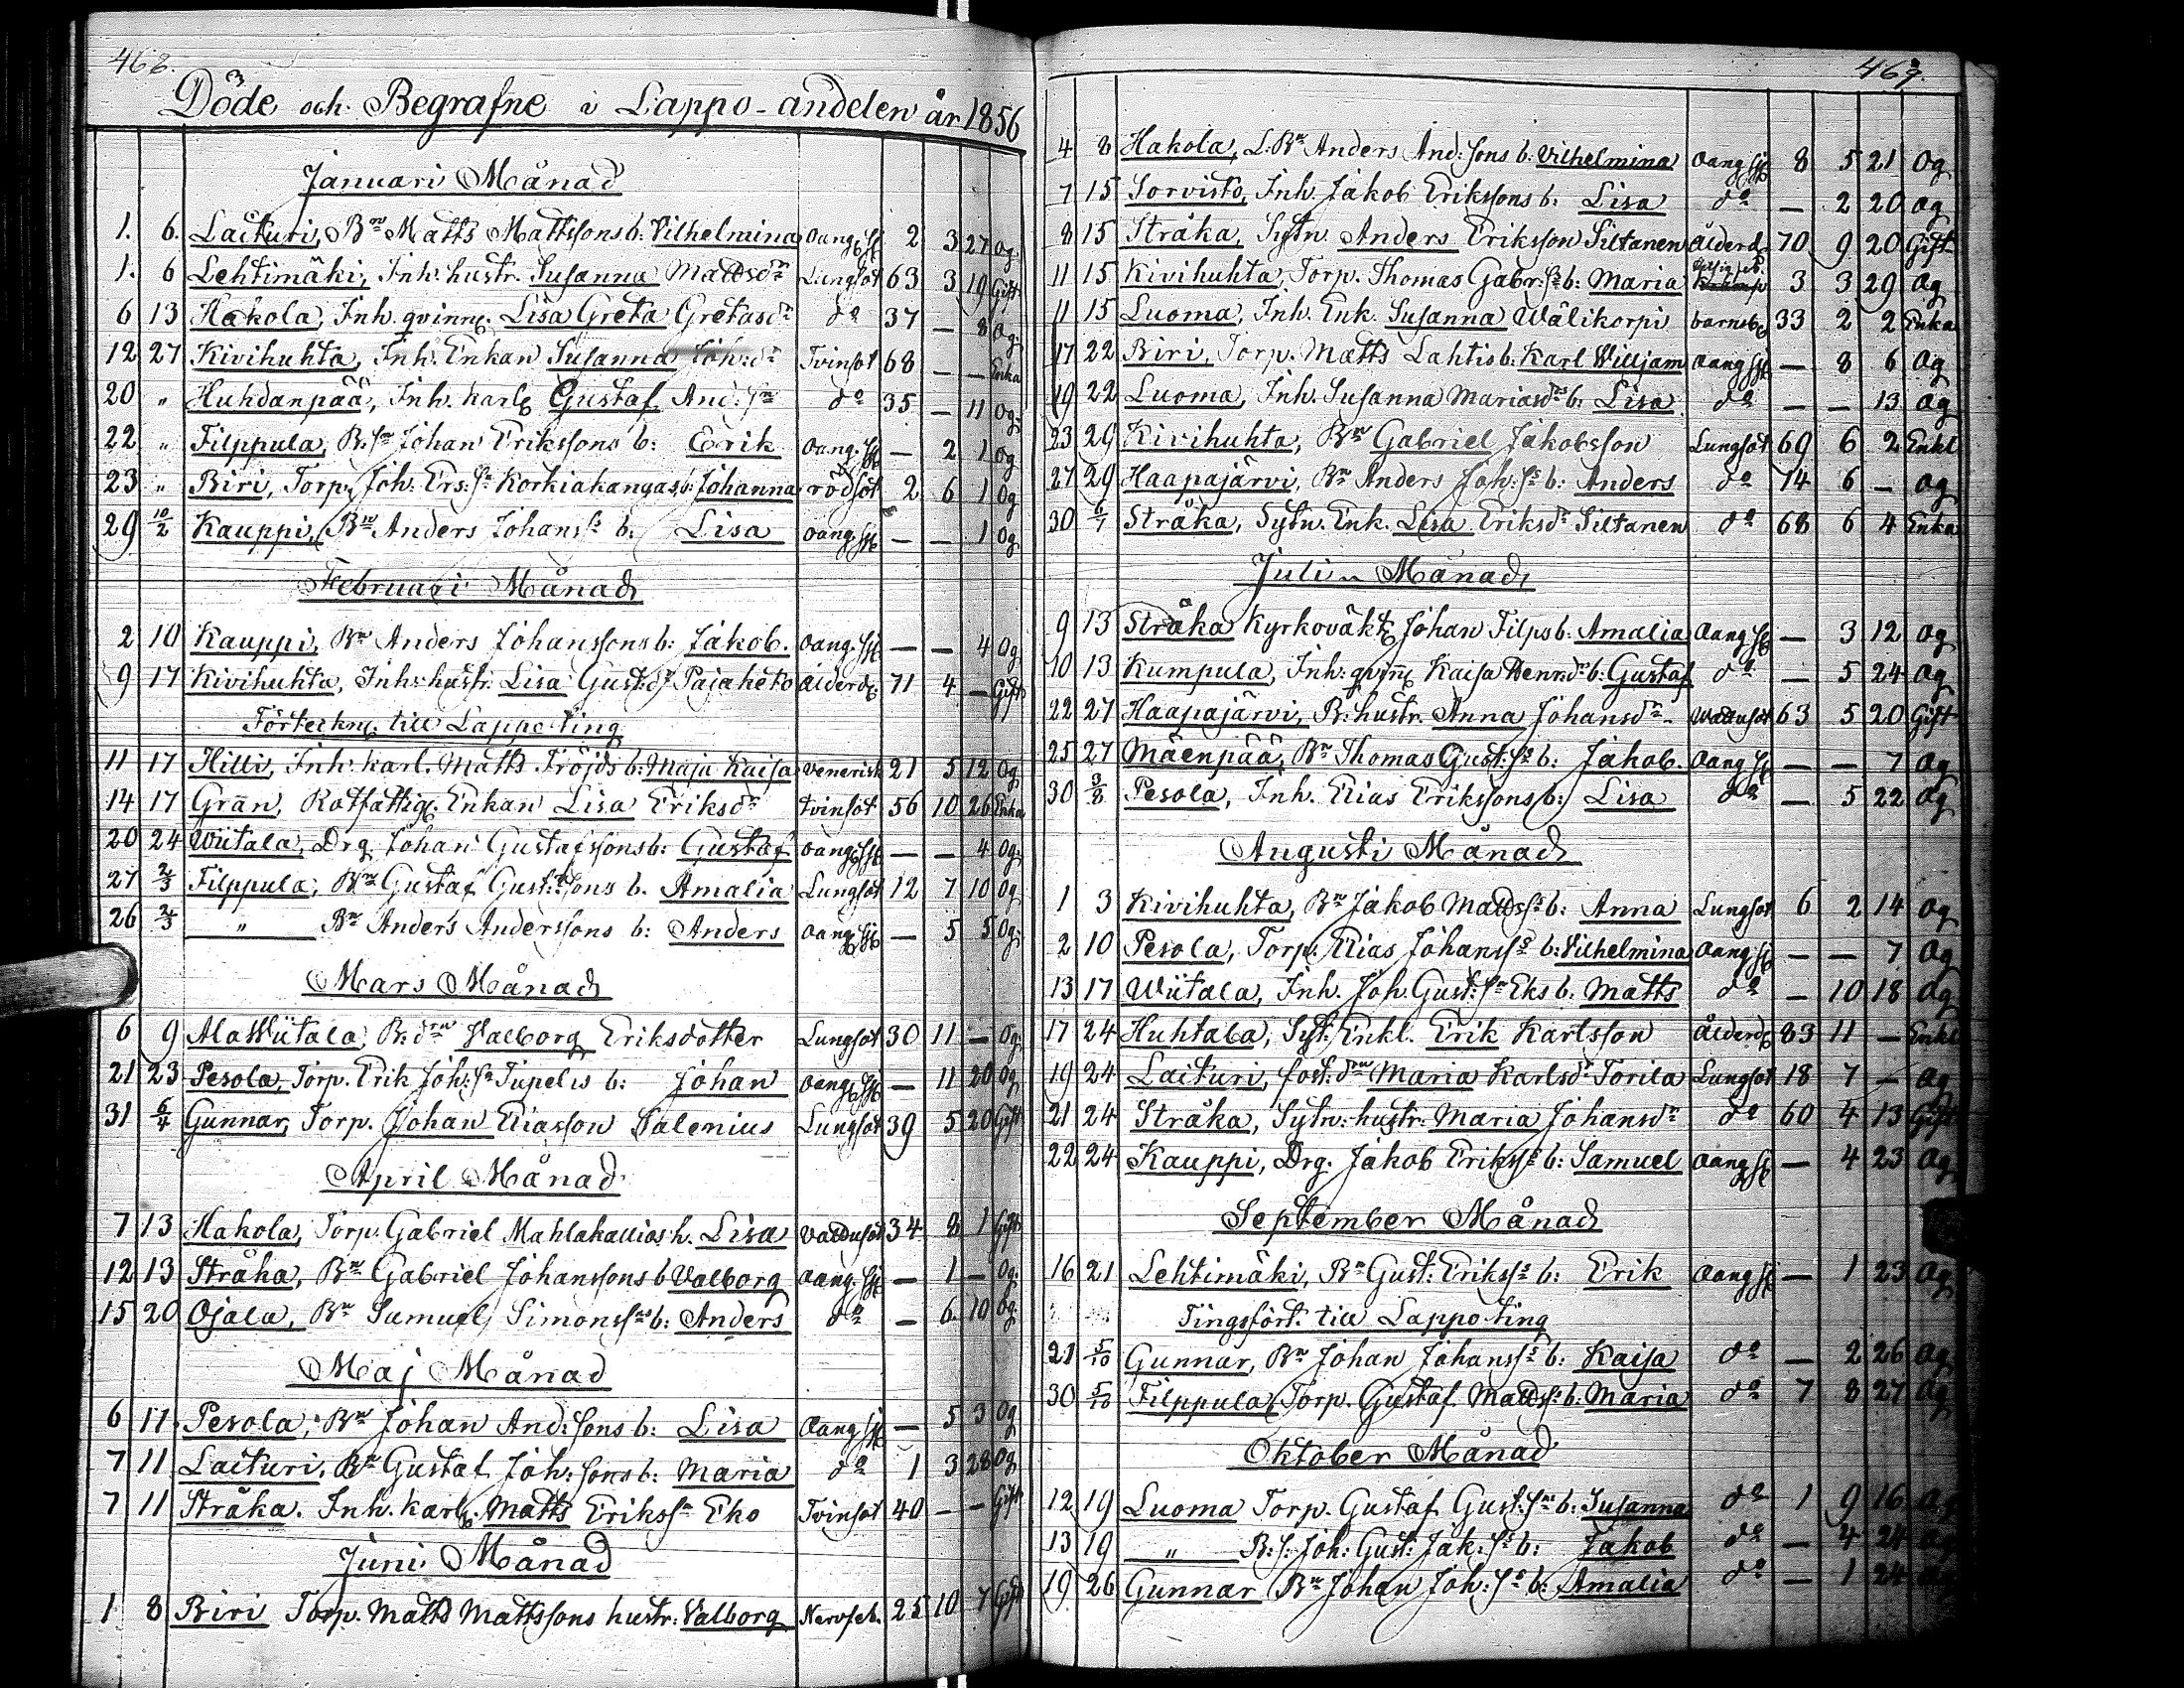 468.
Döde och Begrafne i Lappo-andelen år 1856
Januari Månad
1. 6. Laituri, Bn Matts Mattssons b: Vilhelmina Oang. sj 2 3 27 Og.
1. 6 Lehtimäki, Inh. hustr. Susanna Mattsdr Lungsot 63 3 19 Gift
6 13 Hakola, Inh. qvinna Lisa Greta Gretasdr do 37 — 8 Og.
12 27 Kivihuhta, Inh. Enkan Susanna Joh:dr Tvinsot 68 — — Enka
20 " Huhdanpää, Inh. karl Gustaf And:sn do 35 — 11 Og.
22 " Filppula, B:sn Johan Erikssons b: Erik Oang. sj — 2 1 Og
23 " Biri, Torp. Joh: Ers:sn Korkiakangas b: Johanna rödsot 2 6 1 Og
29 10/2 Kauppi, Bn Anders Johanss b. Lisa Oang. sj — — 1 Og
Februari Månad
2 10 Kauppi, Bn Anders Johanssons b: Jakob. Oang. sj — — 4 Og.
9 17 Kivihuhta, Inh: hustr. Lisa Gust:dr Pajaketo Ålderd. 71 4 — Gift
Förteckn. till Lappo ting
11 17 Hilli, Inh. karl. Matts Fröjds b: Maja Kaisa Venerisk 21 5 12 Og
14 17 Grän, Rotfattig. Enkan Lisa Eriksdr Tvinsot 56 10 26 Enka
20 24 Wiitala, Drg. Johan Gustafssons b: Gustaf Oang. sj — — 4 Og.
27 2/3 Filppula, Bn Gustaf Gust:sons b. Amalia Lungsot 12 7 10 Og
26 2/3 " Bn Anders Anderssons b: Anders Oang. sj — 5 5 Og.
Mars Månad
6 9 AlaWiitala, B:drn Valborg Eriksdotter Lungsot 30 11 — Og.
21 23 Pesola, Torp. Erik Joh:sn Tupelis b: Johan Oang. sj — 11 20 Og
31 6/4 Gunnar, Torp. Johan Eliasson Salenius Lungsot 39 5 20 Gift
April Månad
7 13 Hakola, Torp. Gabriel Mahlakallios h. Lisa Vattusot 34 8 1 Gift
12 13 Stråka, Bn Gabriel Johanssons b Valborg Oang. sj — 1 — Og.
15 20 Ojala, Bn Samuel Simonss b: Anders do — 6 10 Og
Maj Månad
6 11 Pesola, Bn Johan And:sons b: Lisa Oang sj — 5 3 Og
7 11 Laituri, Bn Gustaf Joh:sons b: Maria do 1 3 28 Og
7 11 Stråka. Inh. karl. Matts Erikssn Eko Tvinsot 40 — — Gift
Juni Månad
1 8 Biri Torp. Matts Mattssons hustr: Valborg Nervfeb. 25 10 7 Gift
469.
4 8 Hakola, L.Bn Anders And:sons b: Vilhelmina Oang sj 8 5 21 Og
7 15 Sorvisto, Inh. Jakob Erikssons b: Lisa do — 2 20 Og
8 15 Stråka, Sytn. Anders Eriksson Siltanen Ålderd. 70 9 20 Gift
11 15 Kivihuhta, Torp. Thomas Gabr:s b: Maria 3 3 29 Og
11 15 Luoma, Inh. Enk. Susanna Wälikorpi barnsb 33 2 2 Enka
17 22 Biri, Torp. Matts Lahtis b: Karl Williäm Oang sj — 8 6 Og
19 22 Luoma, Inh. Susanna Mariasdrs b: Lisa do — — 13 Og
23 29 Kivihuhta, Bn Gabriel Jakobsson Lungsot 69 6 2 Enkl
27 29 Haapajärvi, Bn Anders Joh:s b: Anders do 14 6 — Og
30 6/7 Stråka, Sytn. Enk. Lisa Eriksdr Siltanen do 68 6 4 Enka
Julii Månad
9 13 Stråka Kyrkoväkt. Johan Filps b: Amalia Oang sj — 3 12 Og
10 13 Kumpula, Inh: qvinn Kaisa Henr:dr b: Gustaf do — 5 24 Og
22 27 Haapajärvi, B: hustr. Anna Johansdr Vattusot 63 5 20 Gift
25 27 Mäenpää, Bn Thomas Gust:s b: Jakob. Oang sj — — 7 Og
30 3/8 Pesola, Inh. Elias Erikssons b: Lisa do — 5 22 Og
Augusti Månad
1 3 Kivihuhta, Bn Jakob Matts:s b: Anna Lungsot 6 2 14 Og
2 10 Pesola, Torp. Elias Johanss b: Vilhelmina Oang sj — — 7 Og
13 17 Wiitala, Inh. Joh. Gust:sn Eks b: Matts do — 10 18 Og
17 24 Huhtala, Syt: Enkl. Erik Karlsson Ålderd 83 11 — Enkl
19 24 Laituri, fost:drn Maria Karlsdr Torila Lungsot 18 7 — Og
21 24 Stråka, Sytn: hustr: Maria Johansdr do 60 4 13 Gift
22 24 Kauppi, Drg. Jakob Erikss b: Samuel Oang sj — 4 23 Og
September Månad
16 21 Lehtimäki, Bn Gust: Erikss b: Erik Oang sj — 1 23 Og
Tingsfört. till Lappo ting
21 5/10 Gunnar, Bn Johan Johanss b: Kaisa do — 2 26 Og
30 5/10 Filppula, Torp. Gustaf Mattss b: Maria do 7 8 27 Og
Oktober Månad
12 19 Luoma Torp. Gustaf Gust:sns b: Susanna do 1 9 16 Og
13 19 " B:s: Joh: Gust: Jak:s b: Jakob do — 4 24 Og
19 26 Gunnar Bn Johan Joh:s b: Amalia do — 1 24 Og